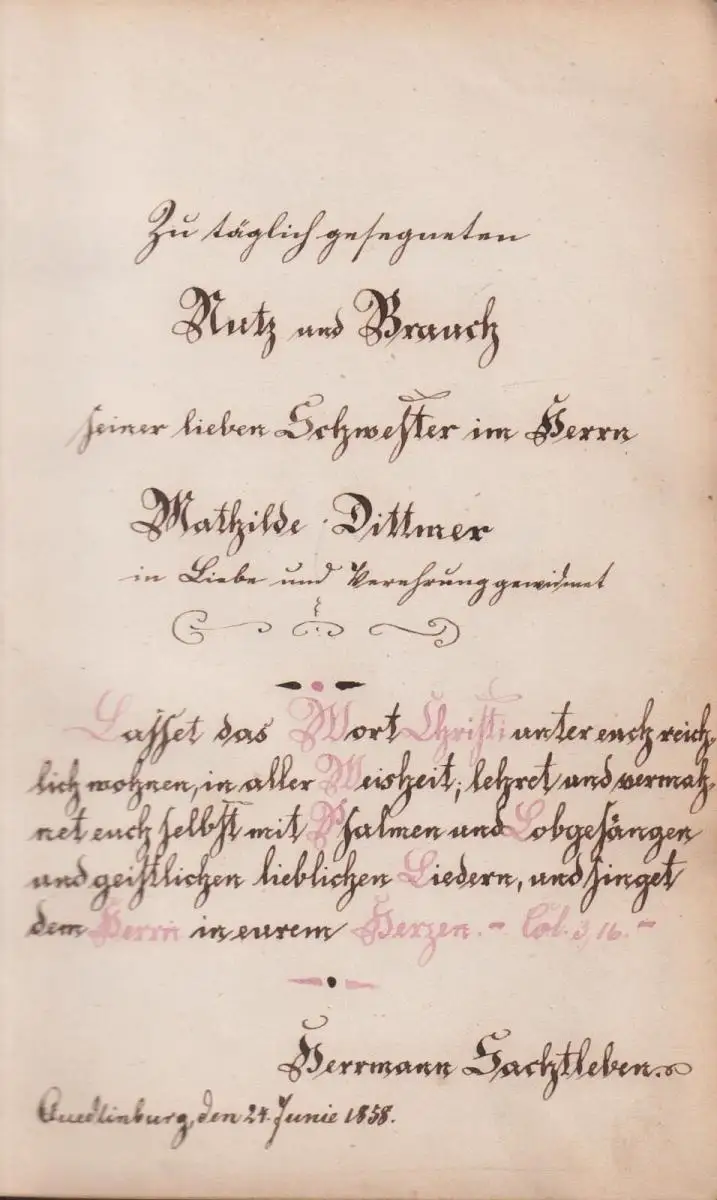 Zu täglich gesegneten
Nutz und Brauch
seiner lieben Schwester im Herrn
Mathilde Dittmer
in Liebe und Verehrung gewidmet
Lasset das Wort Christi unter euch reich,
lich wohnen, in aller Weisheit; lehret und vermah,
net euch selbst mit Psalmen und Lobgesängen
und geistlichen lieblichen Liedern, und singet
dem Herrn in eurem Herzen. - Col. 3, 16. -
Herrmann Sachtleben.
Quedlinburg, den 24. Junie 1858.